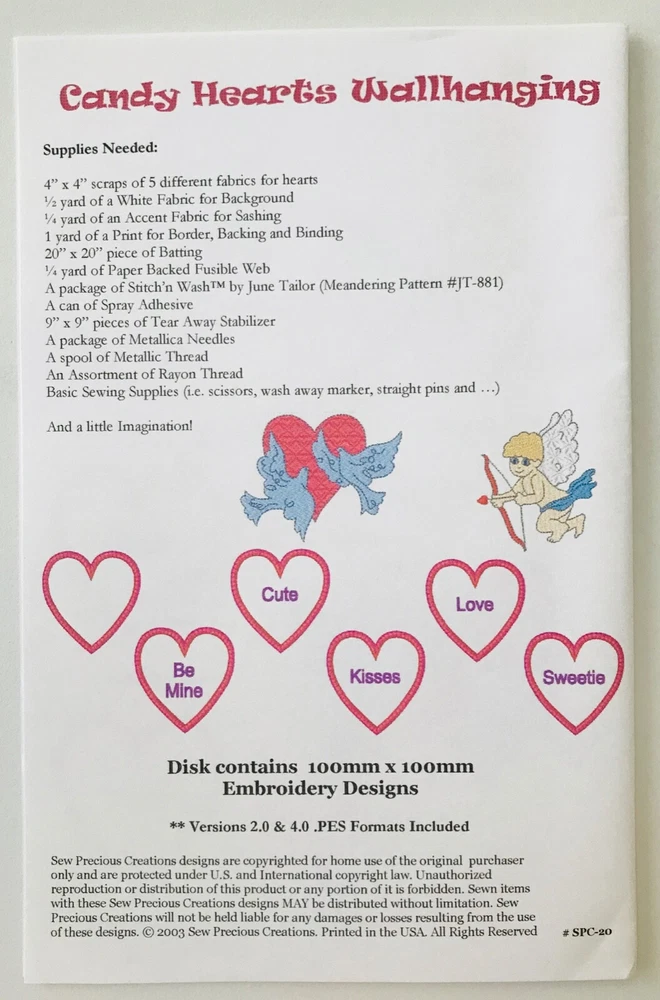 Candy Hearts Wallhanging
Supplies Needed:
4” x 4” scraps of 5 different fabrics for hearts
½ yard of a White Fabric for Background
¼ yard of an Accent Fabric for Sashing
1 yard of a Print for Border, Backing and Binding
20” x 20” piece of Batting
¼ yard of Paper Backed Fusible Web
A package of Stitch’n Wash™ by June Tailor (Meandering Pattern #JT-881)
A can of Spray Adhesive
9” x 9” pieces of Tear Away Stabilizer
A package of Metallica Needles
A spool of Metallic Thread
An Assortment of Rayon Thread
Basic Sewing Supplies (i.e. scissors, wash away marker, straight pins and …)
And a little Imagination!
Cute
Love
Be
Mine
Kisses
Sweetie
Disk contains 100mm x 100mm
Embroidery Designs
** Versions 2.0 & 4.0 .PES Formats Included
Sew Precious Creations designs are copyrighted for home use of the original purchaser
only and are protected under U.S. and International copyright law. Unauthorized
reproduction or distribution of this product or any portion of it is forbidden. Sewn items
with these Sew Precious Creations designs MAY be distributed without limitation. Sew
Precious Creations will not be held liable for any damages or losses resulting from the use
of these designs. © 2003 Sew Precious Creations. Printed in the USA. All Rights Reserved
# SPC-20